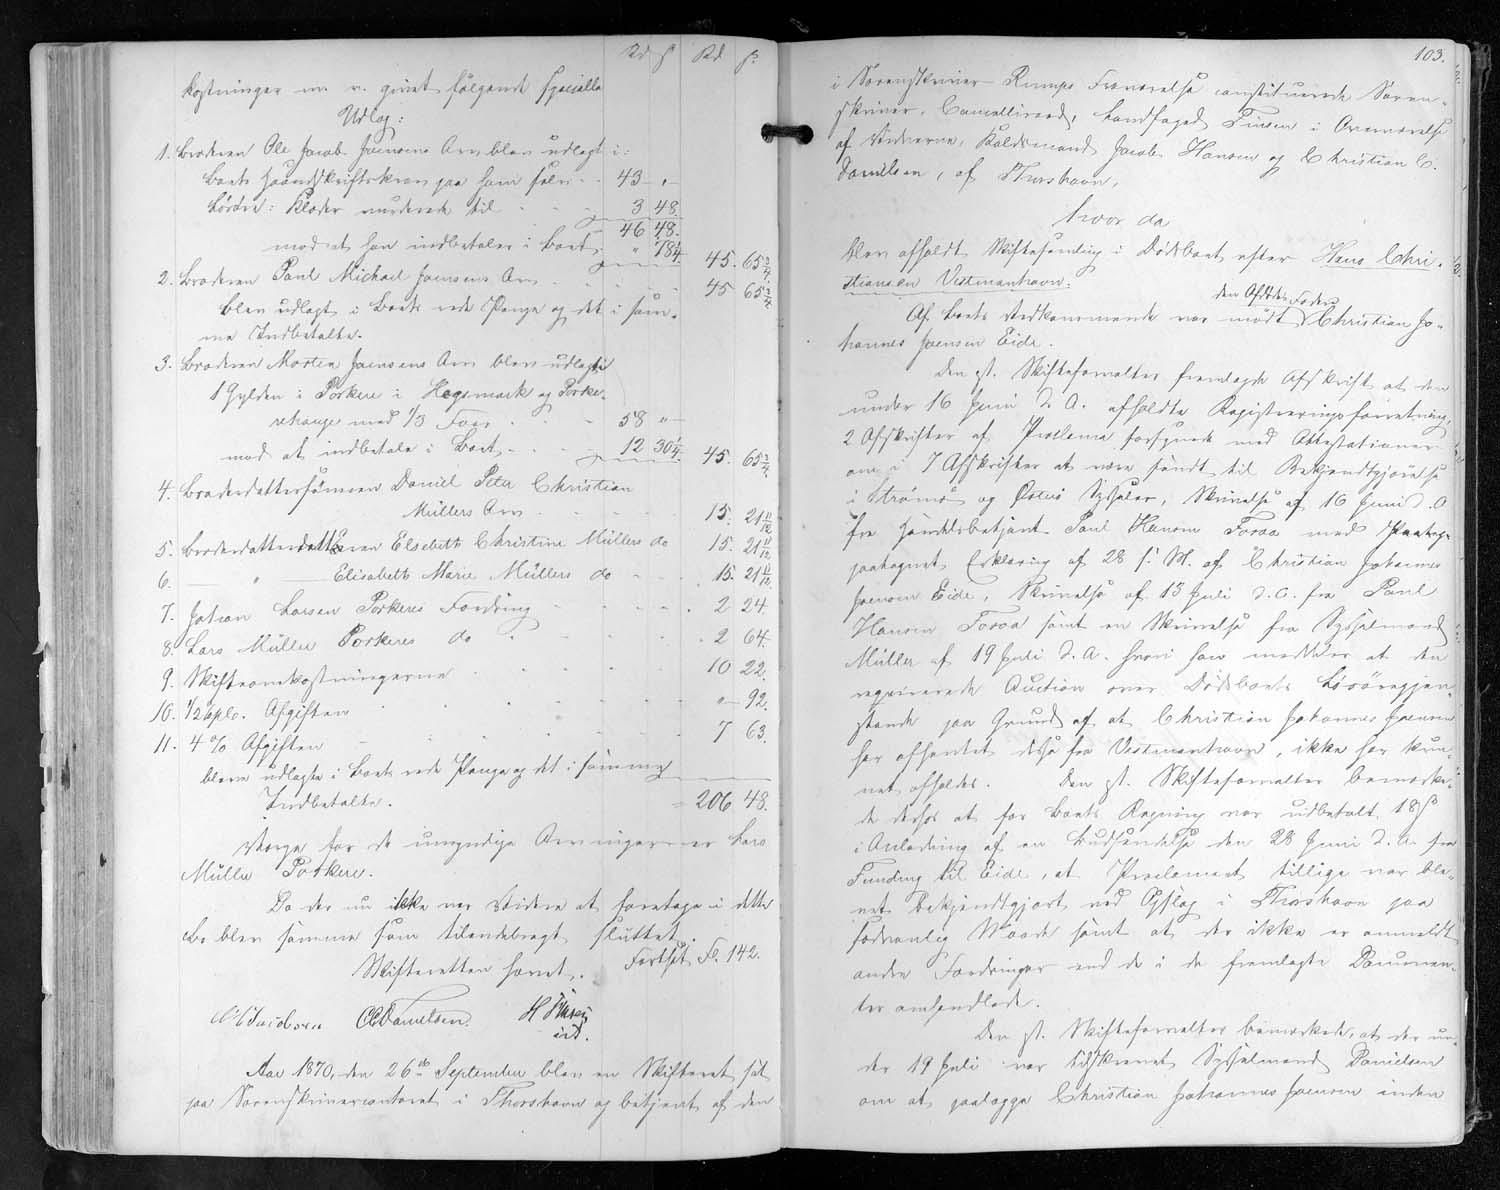 Rd ß Rd ß
kostninger m. v. givet følgende specielle
Udlæg:
1. Broderen Ole Jacob Joensens Arv blev udlagt i:
Boets Haandskriftskrav paa ham selv . . 43 "
Løsøre: Klæder vurderede til . . . 3 48.
46 48.
mod at han indbetaler i Boet. " 78 1/4. 45. 65 3/4.
2. Broderen Paul Michael Joensens Arv . . . 45 65 3/4
blev udlagt i Boets rede Penge og det i sam-
me Indbetalte.
3. Broderen Morten Joensens Arv blev udlagt i
1 Gylden i Porkere i Hegsmark og Porke-
rehauge med 1/3 Faar . . . 58 "
mod at indbetale i Boet . . . 12 30 1/4. 45. 65 3/4.
4. Broderdattersønnen Daniel Peter Christian
Müllers Arv . . . 15. 21 11/12
5. Broderdatterdatteren Elsebeth Christine Müllers do 15. 21 11/12
6. — " — Elisabeth Marie Müllers do . . . 15. 21 11/12
7. Johan Larsen Porkeres Fordring . . . 2 24.
8. Lars Müller Porkeres do . . . 2 64.
9. Skifteomkostningerne . . . 10 22.
10. 1/2 % Afgiften . . . " 92.
11. 4 % Afgiften . . . 7 63.
bleve udlagte i Boets rede Penge og det i samme
Indbetalte. = 206 48.
Værge for de umyndige Arvinger er Lars
Müller Porkere.
Da der nu ikke var Videre at foretage i dette
Bo blev samme som tilendebragt sluttet.
Skifteretten hævet. Fortsat Fo. 142.
Jacobsen CC Danielsen. H Tinsen
cst.
Aar 1870, den 26de September blev en Skifteret sat
paa Sorenskrivercontoret i Thorshavn og betjent af den
103.
i Sorenskriver Rumps Fraværelse constituerede Soren-
skriver, Cancelliraad, Landfoged Tinsen i Overværelse
af Vidnerne, Kaldsmand Jacob Hansen og Christian C.
Danielsen, af Thorshavn,
hvor da
blev afholdt Skiftesamling i Dødsboet efter Hans Chri-
stiansen Vestmanhavn.
Af Boets Vedkommende var mødt den Afdødes Fader Christian Jo-
hannes Joensen Eide.
Den cst. Skifteforvalter fremlagde Afskrift at den
under 16 Juni d. A. afholdte Registreringsforretning,
2 Afskrifter af Proclama forsynede med Attestationer
om i 7 Afskrifter at være sendt til Bekjendtgjørelse
i Strømø og Østerø Sysseler, Skrivelse af 16 Juni d. A
fra Handelsbetjent Paul Hansen Fossa med
paategnet Erklæring af 28 s. M. af Christian Johannes
Joensen Eide, Skrivelse af 15 Juli d. A. fra Paul
Hansen Fossa samt en Skrivelse fra Sysselmand
Müller af 19 Juli d. A. hvori han meddeler at den
requirerede Auction over Dødsboets Løsøregjen-
stande paa Grund af at Christian Johannes Joensen
har afhentet disse fra Vestmanhavn, ikke har kun-
net afholdes. Den cst. Skifteforvalter bemærke-
de derhos at for Boets Regning var udbetalt 18 ß
i Anledning af en Budsendelse den 28 Juni d. A. fra
Funding til Eide, at Proclamaet tillige var ble-
vet bekjendtgjort ved Opslag i Thorshavn paa
sædvanlig Maade samt at der ikke er anmeldt
andre Fordringer end de i de fremlagte Documen-
ter omhandlede.
Den cst. Skifteforvalter bemærkede, at der un-
der 19 Juli var tilskrevet Sysselmand Danielsen
om at paalægge Christian Johannes Joensen inden